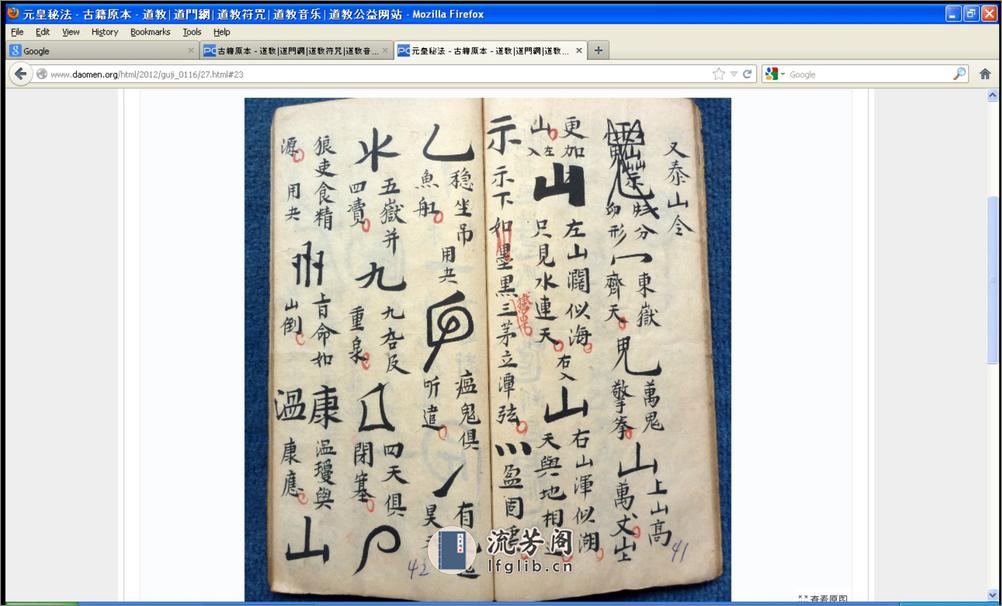 元皇秘法 - 古籍原本 - 道教|道門網|道教符咒|道教音乐|道教公益网站 - Mozilla Firefox
File Edit View History Bookmarks Tools Help
Google
古籍原本 - 道教|道門網|道教符咒|道教音...
元皇秘法 - 古籍原本 - 道教|道門網|道教...
www.daomen.org/html/2012/guji_0116/27.html#23
Google
又泰山令
分
卯形
東嶽
齊天
鬼
萬鬼
擎拳
山
上山高
萬丈
更加
山
左入
山
左山濶似海
只見水連天
右入
山
右山渾似湖
天與地相
示
示下如墨黑
三茅立潭弦
乙
稳坐吊
魚舡
用夬
瘟鬼俱
听遣
有
昊
水
五嶽并
四瀆
九
重泉
四天俱
閉塞
狼吏食精
源
用夬
命如
山倒
康
温
温瓊與
康應
山
41
42
流芳阁
lfglib.cn
查看原图